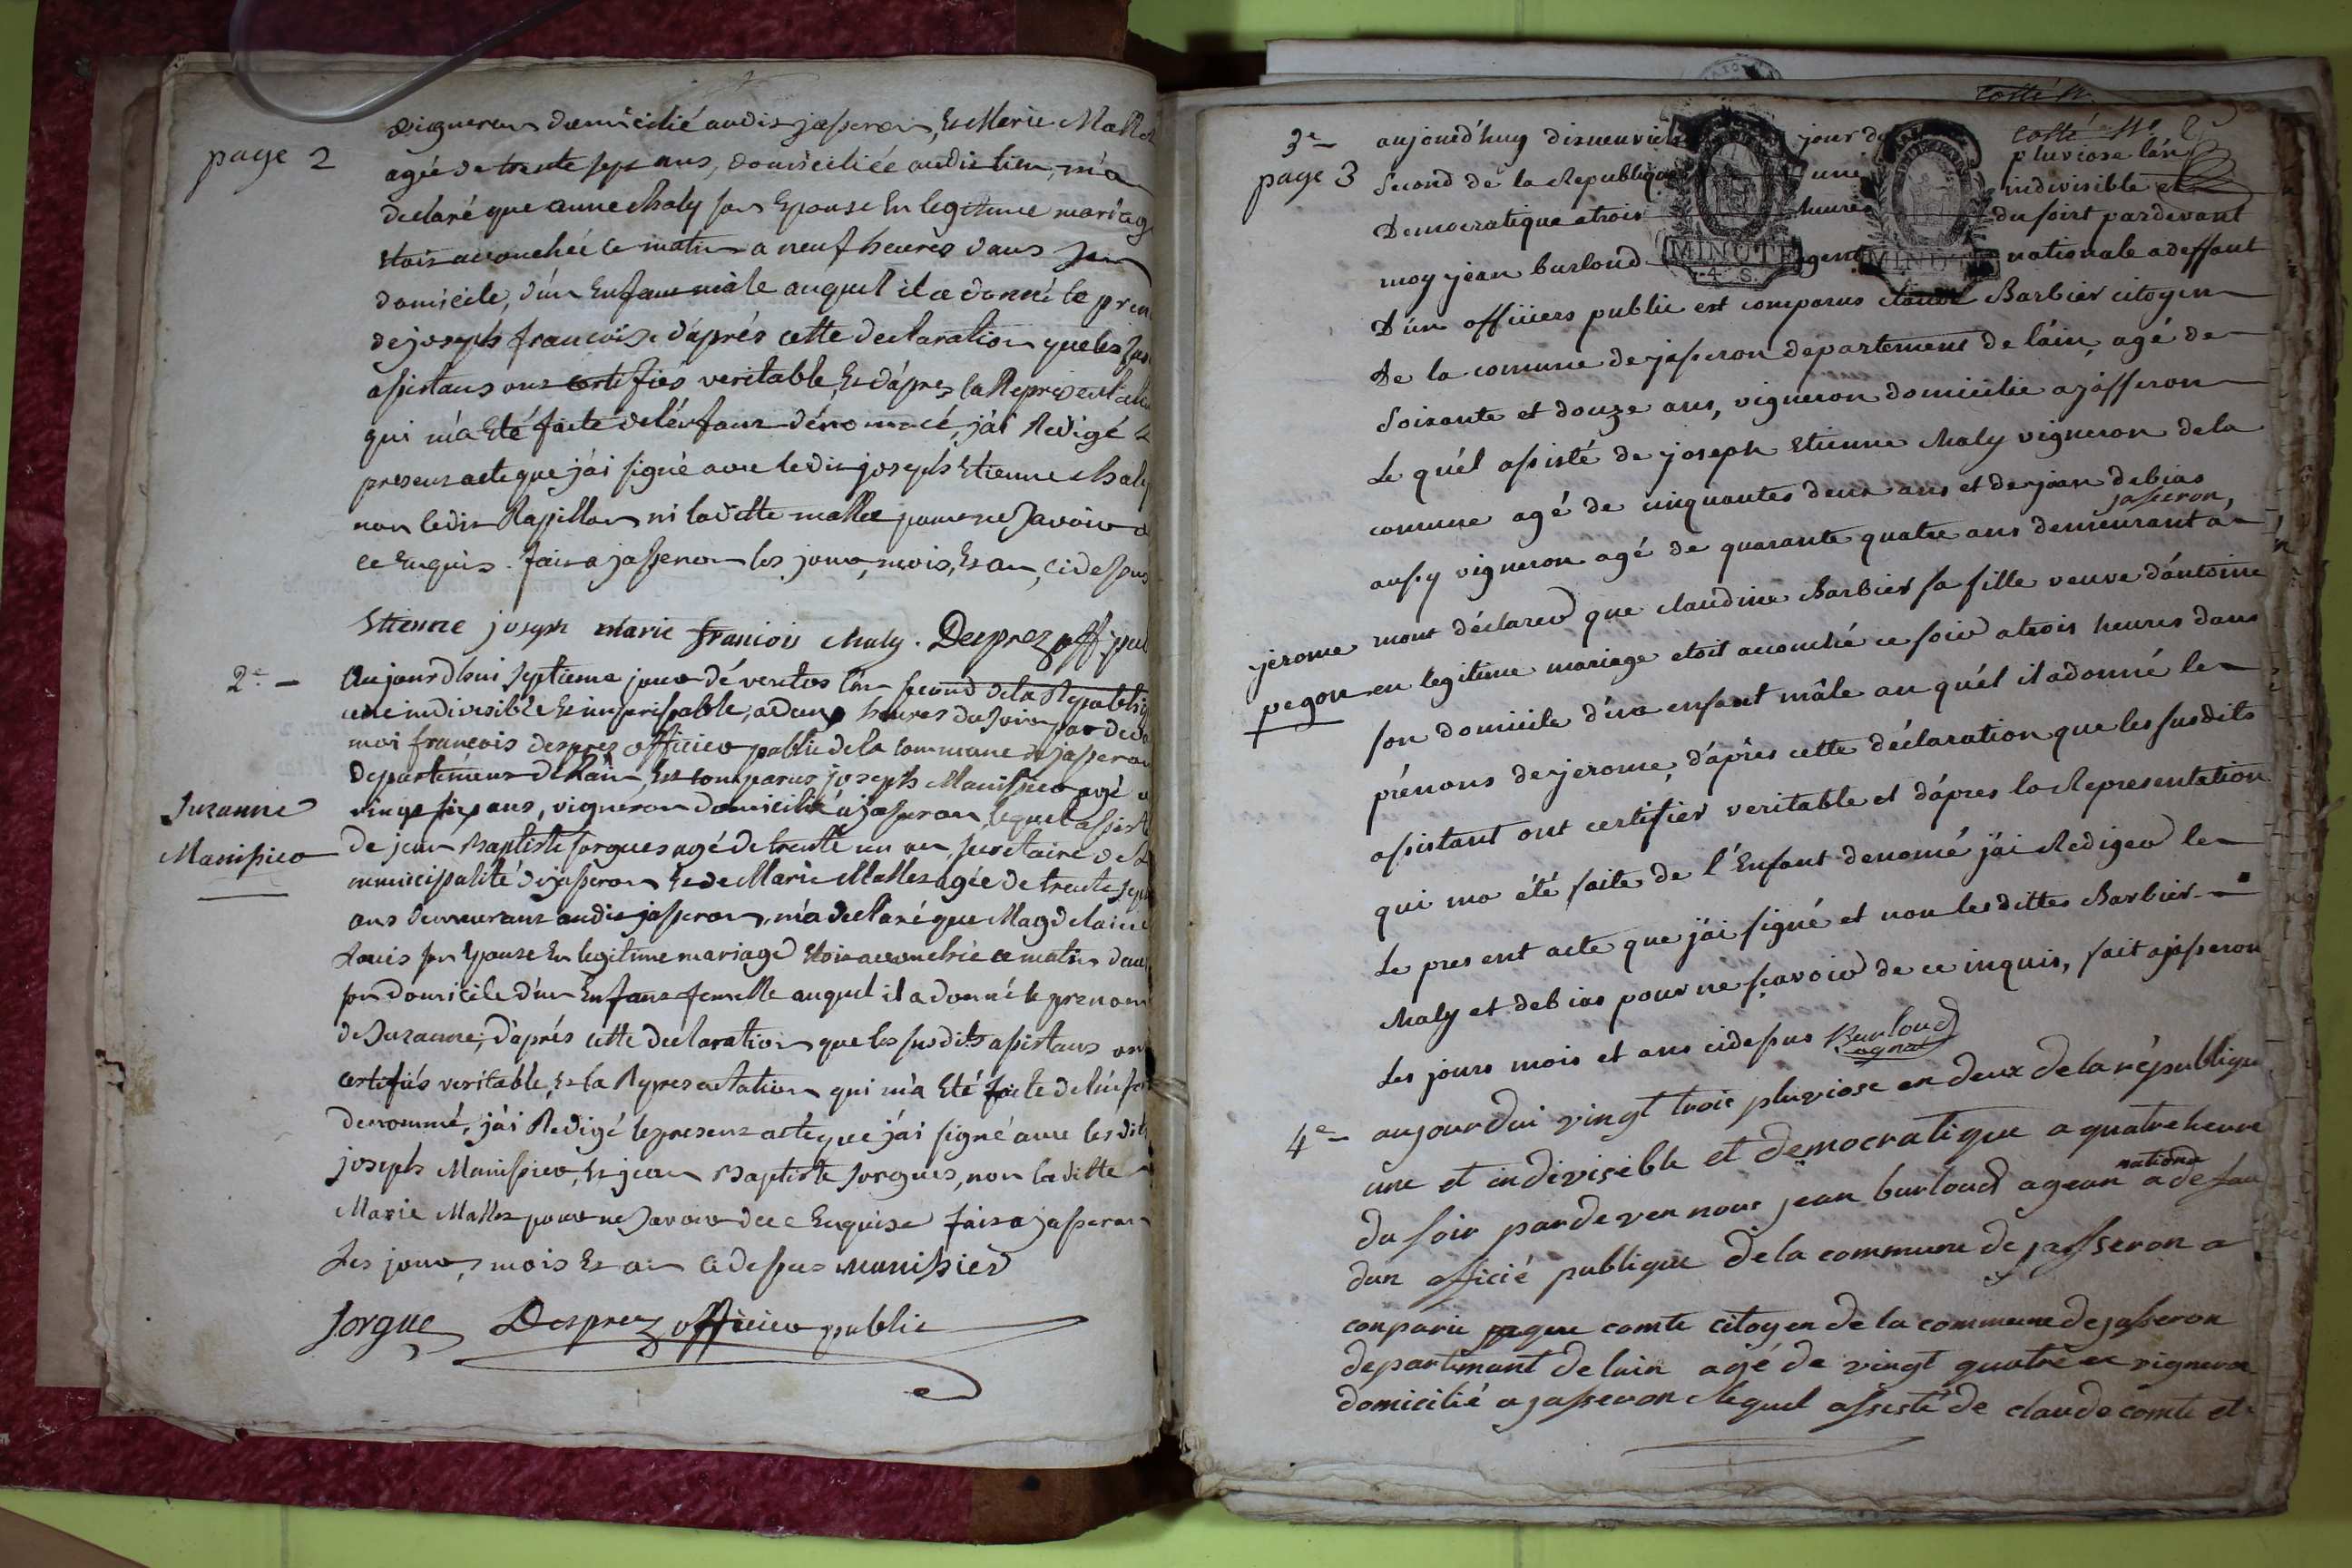 page 2
vigneron domicilié audit jasseron, Et Marie Mallet
agée de trente sept ans, domiciliée audit lieu, m'a
declaré que anne Maly son Epouse En legitime mariage
etoit accouchée ce matin a neuf heures dans son
domicile, d'un Enfant mâle auquel il a donné le pren
de joseph francois. d'aprés cette declaration que les sus
assistans ont certifiés veritable, Et d'apres la Representation
qui m'a Eté faite de l'enfant dénommé, j'ai Redigé le
present acte que j'ai signé avec ledit joseph Etienne Maly
non ledit Rapillon ni laditte mallet pour ne Savoir de
ce Enquis. fait a jasseron les jour, mois, Et an, ci dessus
Ettienne joseph marie francois Maly. Desprez off. pub
2e
aujourd'hui septieme jour dé ventos l'an second de la Republiq
une indivisible Et imperissable, a deux heures du soir par deva
moi francois desprez officier public de la commune de jasseron
departement de l'ain, Est comparus joseph Manissier agé de
vingt six ans, vigneron domicilié a jasseron, lequel assisté
Suzanne
Manissier
de jean Baptiste sorgues agé de trente un an, secretaire de la
municipalité de jasseron Et de Marie Mallet agée de trente sept
ans demeurant audit jasseron, m'a declaré que Magdelaine
Louis son Epouse En legitime mariage Etoit accouchée ce matin dans
son domicile d'un Enfant femelle auquel il a donné le prenom
de Suzanne; d'aprés cette declaration que les susdits assistans ont
certifiés veritable, Et la Representation qui m'a Eté faite de l'enfant
denommé, j'ai Redigé le present acte que j'ai signé avec les dits
joseph Manissier, Et jean Baptiste Sorgues, non laditte
Marie Mallet pour ne Savoir de ce Enquise fait a jasseron
Les jour, mois Et an ci dessus manissier
Sorgue Desprez officier public
cotté
3e
page 3
aujourd'huy disneuvieme jour de pluviose l'an
second de la Republique une indivisible et
Democratique atrois heures du soirt pardevant
moy jean burloud agent nationale adeffaut
D'un officiers public est comparus claude Barbier citoyen
De la comune de jasseron departement de l'ain, agé de
Soixante et douze ans, vigneron domicilie a jasseron
Le quél assisté de joseph Etienne Maly vigneron dela
comune agé de cinquantes deux ans et de jean debias
jasseron,
aussy vigneron agé de quarante quatre ans demeurant á
jerome
pegon
mont déclarer que claudine Barbier sa fille veuve d'antoine
en legitime mariage etoit acouchée ce soir atrois heures dans
son domicile d'un enfant mâle au quél il adonné le
prénons de jerome, d'aprés cette déclaration que les susdits
assistant ont certifier veritable et d'apres la Representation
qui ma été faite de l'Enfant denomé j'ai Rediger le
Le present acte que j'ai signé et non lesdittes Barbier
Maly et debias pour ne sçavoir de ce inquis, fait ajasseron
Les jours mois et ans cidessus Burloud
agnat
4e
aujourdui vingt trois pluviose an deux de la republique
une et indivisible et democratique a quatre heure
national
du soir pardeven nous jean burloud agean adefau
dun officié publique de la commune de jasseron a
conparu comte citoyen de la commune de jasseron
departemant de lain agé de vingt quatre an vigneron
domicilié a jasseron lequel assisté de claude comte et